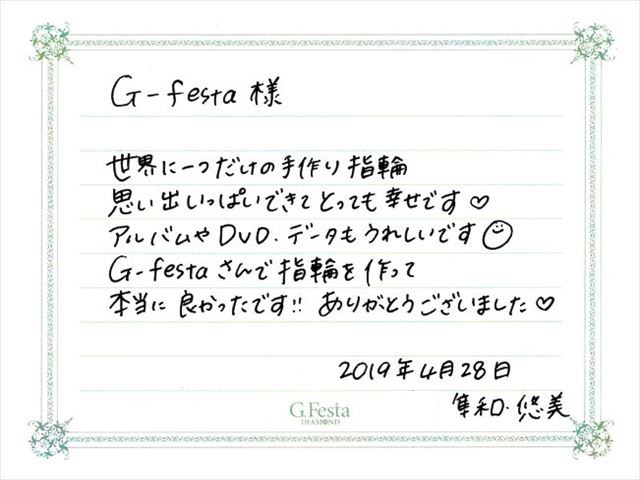 G-festa 様
世界に一つだけの手作り指輪
思い出いっぱいできてとっても幸せです♡
アルバムや DVD.データもうれしいです☺
G-festaさんで指輪を作って
本当に良かったです!! ありがとうございました♡
2019年4月28日
隼和・悠美
G.Festa
DIAMOND